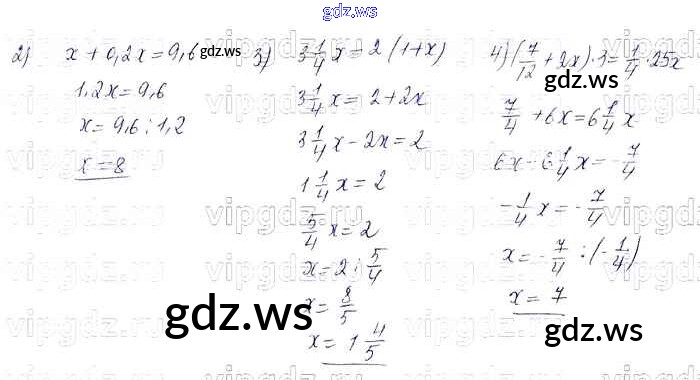 gdz.ws
2) x + 0,2x = 9,6
1,2x = 9,6
x = 9,6 : 1,2
x = 8
gdz.ws
3) 3 1/4 x = 2 (1+x)
3 1/4 x = 2 + 2x
3 1/4 x - 2x = 2
1 1/4 x = 2
5/4 x = 2
x = 2 : 5/4
x = 8/5
x = 1 4/5
4) (7/12 + 2x) · 3 = 1/4 · 25x
gdz.ws
7/4 + 6x = 6 1/4 x
6x - 6 1/4 x = - 7/4
- 1/4 x = - 7/4
x = - 7/4 : (- 1/4)
x = 7
gdz.ws
gdz.ws
vipgdz.ru
vipgdz.ru
vipgdz.ru